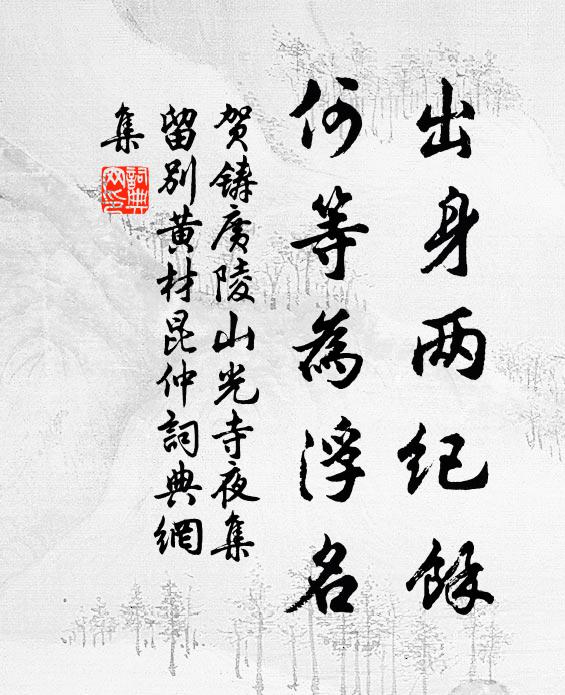 出身两纪餘
何等為浮名
贺鑄廣陵山光寺夜集
留别黄材昆仲詞典網
集
詞典網